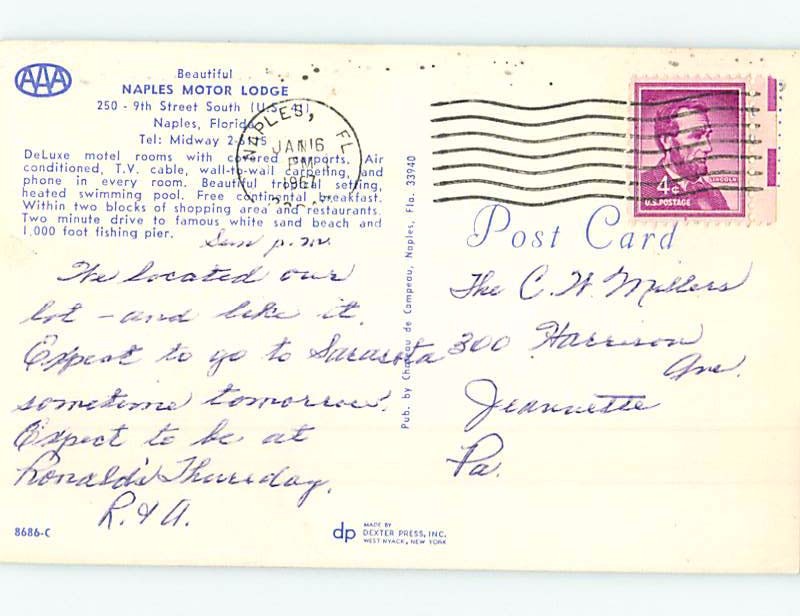 AAA
Beautiful
NAPLES MOTOR LODGE
250 - 9th Street South (U.S. 41)
Naples, Florida
Tel: Midway
DeLuxe motel rooms with covered carports. Air
conditioned, T.V. cable, wall-to-wall carpeting, and
phone in every room. Beautiful tropical setting,
heated swimming pool. Free continental breakfast.
Within two blocks of shopping area and restaurants.
Two minute drive to famous white sand beach and
1,000 foot fishing pier.
Sun p.m.
We located our
lot - and like it.
Expect to go to Sarasota
sometime tomorrow.
Expect to be at
Ronald's Thursday.
R. & A.
8686-C
dp
MADE BY
DEXTER PRESS, INC.
WEST NYACK, NEW YORK
Pub. by Chateau de Campeau, Naples, Fla. 33940
NAPLES, FL
JAN 16
PM
1967
4¢
LINCOLN
U.S. POSTAGE
Post Card
The C. W. Millers
300 Harrison
Ave.
Jeannette
Pa.